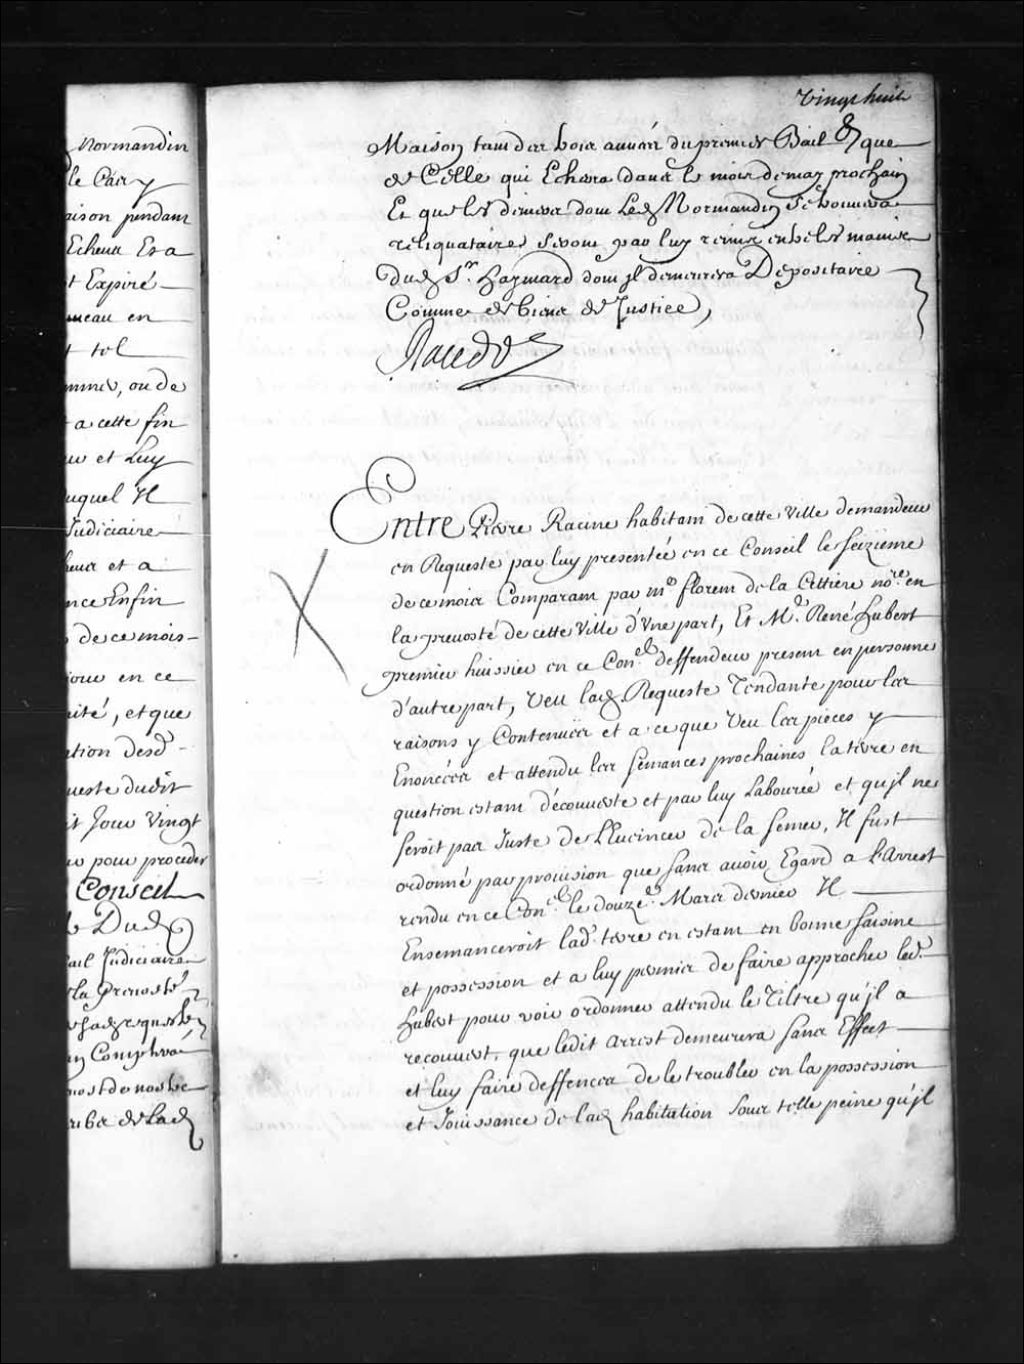 Vingt huit
Normandin
le Car y
aison pendant
Echeua Et a
t Expiré
meau en
t tel
mmes, ou de
a cette fin
eu et Luy
uquel Il
Judiciaire
heur et a
nce Enfin
de ce mois
jour en ce
uité, et que
ation desd.
ueste dudit
it Jour Vingt
eu pour proceder
Conseil
Dud
ail Judiciaire
la Preuosté
lad requeste
en Comp
nost de nostre
de lad
Maison tant des trois années du premier Bail & que
de Celle qui Echera dans le mois de may prochain
Et que les deniers dont Led Normandin se trouuera
reliquataire seront par luy remis en tre les mains
dud Sr. haymard dont jl demeurera Depositaire
Comme de biens de Justice,
Raudot
Entre Pierre Racine habitant de cette Ville demandeur
en Requeste par luy presentée en ce Conseil le seizieme
de ce mois Comparant par me florent de la Cettiere nore. en
la preuosté de cette Ville d'Vne part, Et Me. René hubert
premier huissier en ce Conel. deffendeur present en personne
d'autre part, Veu lad Requeste Tendante pour les
raisons y Contenües et a ce que Veu les pieces y
Enoncées et attendu les semances prochaines la terre en
question estant découuerte et par luy Labourée et qu'jl ne
seroit pas Juste de L'Eucincer de la semer, Il fust
ordonné par prouision que sans auoir Egard a l'Arrest
rendu en ce Conel. le douze. Mars dernier Il
Ensemanceroit lad. terre en estant en bonne saisine
et possession et a luy permis de faire approcher led.
hubert pour voir ordonner attendu le Tiltre qu'jl a
recouuert, que ledit arrest demeurera sans Effect
et luy faire deffences de le troubler en la possession
et Joüissance de lad habitation sous telle peine qu'jl